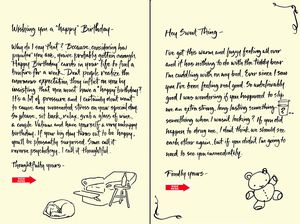 Wishing you a "happy" Birthday -
Why do I say that? Because considering how
popular you are, you've probably gotten enough
Happy Birthday cards in your life to fuel a
bonfire for a week. Don't people realize the
enormous expectation they inflict on you by
insisting that you must have a "happy birthday?"
It's a lot of pressure and I certainly don't want
to cause any unwanted stress on your special day.
So please, sit back, relax, grab a glass of wine,
a couple Valiums and have yourself a very unhappy
birthday. If your big day turns out to be happy,
you'll be pleasantly surprised. Some call it
reverse psychology, I call it thoughtful.
Thoughtfully yours -
Hey Sweet Thing -
I've got this warm and fuzzy feeling all over
and it has nothing to do with the Teddy bear
I'm cuddling with on my bed. Ever since I saw
you I've been feeling real good. So unbelievably
good I was wondering if you happened to slip
me an extra strong, long lasting something
something when I wasn't looking? If you did
happen to drug me, I don't think we should see
each other again, but if you didn't I'm going to
need to see you immediately.
Fondly yours -